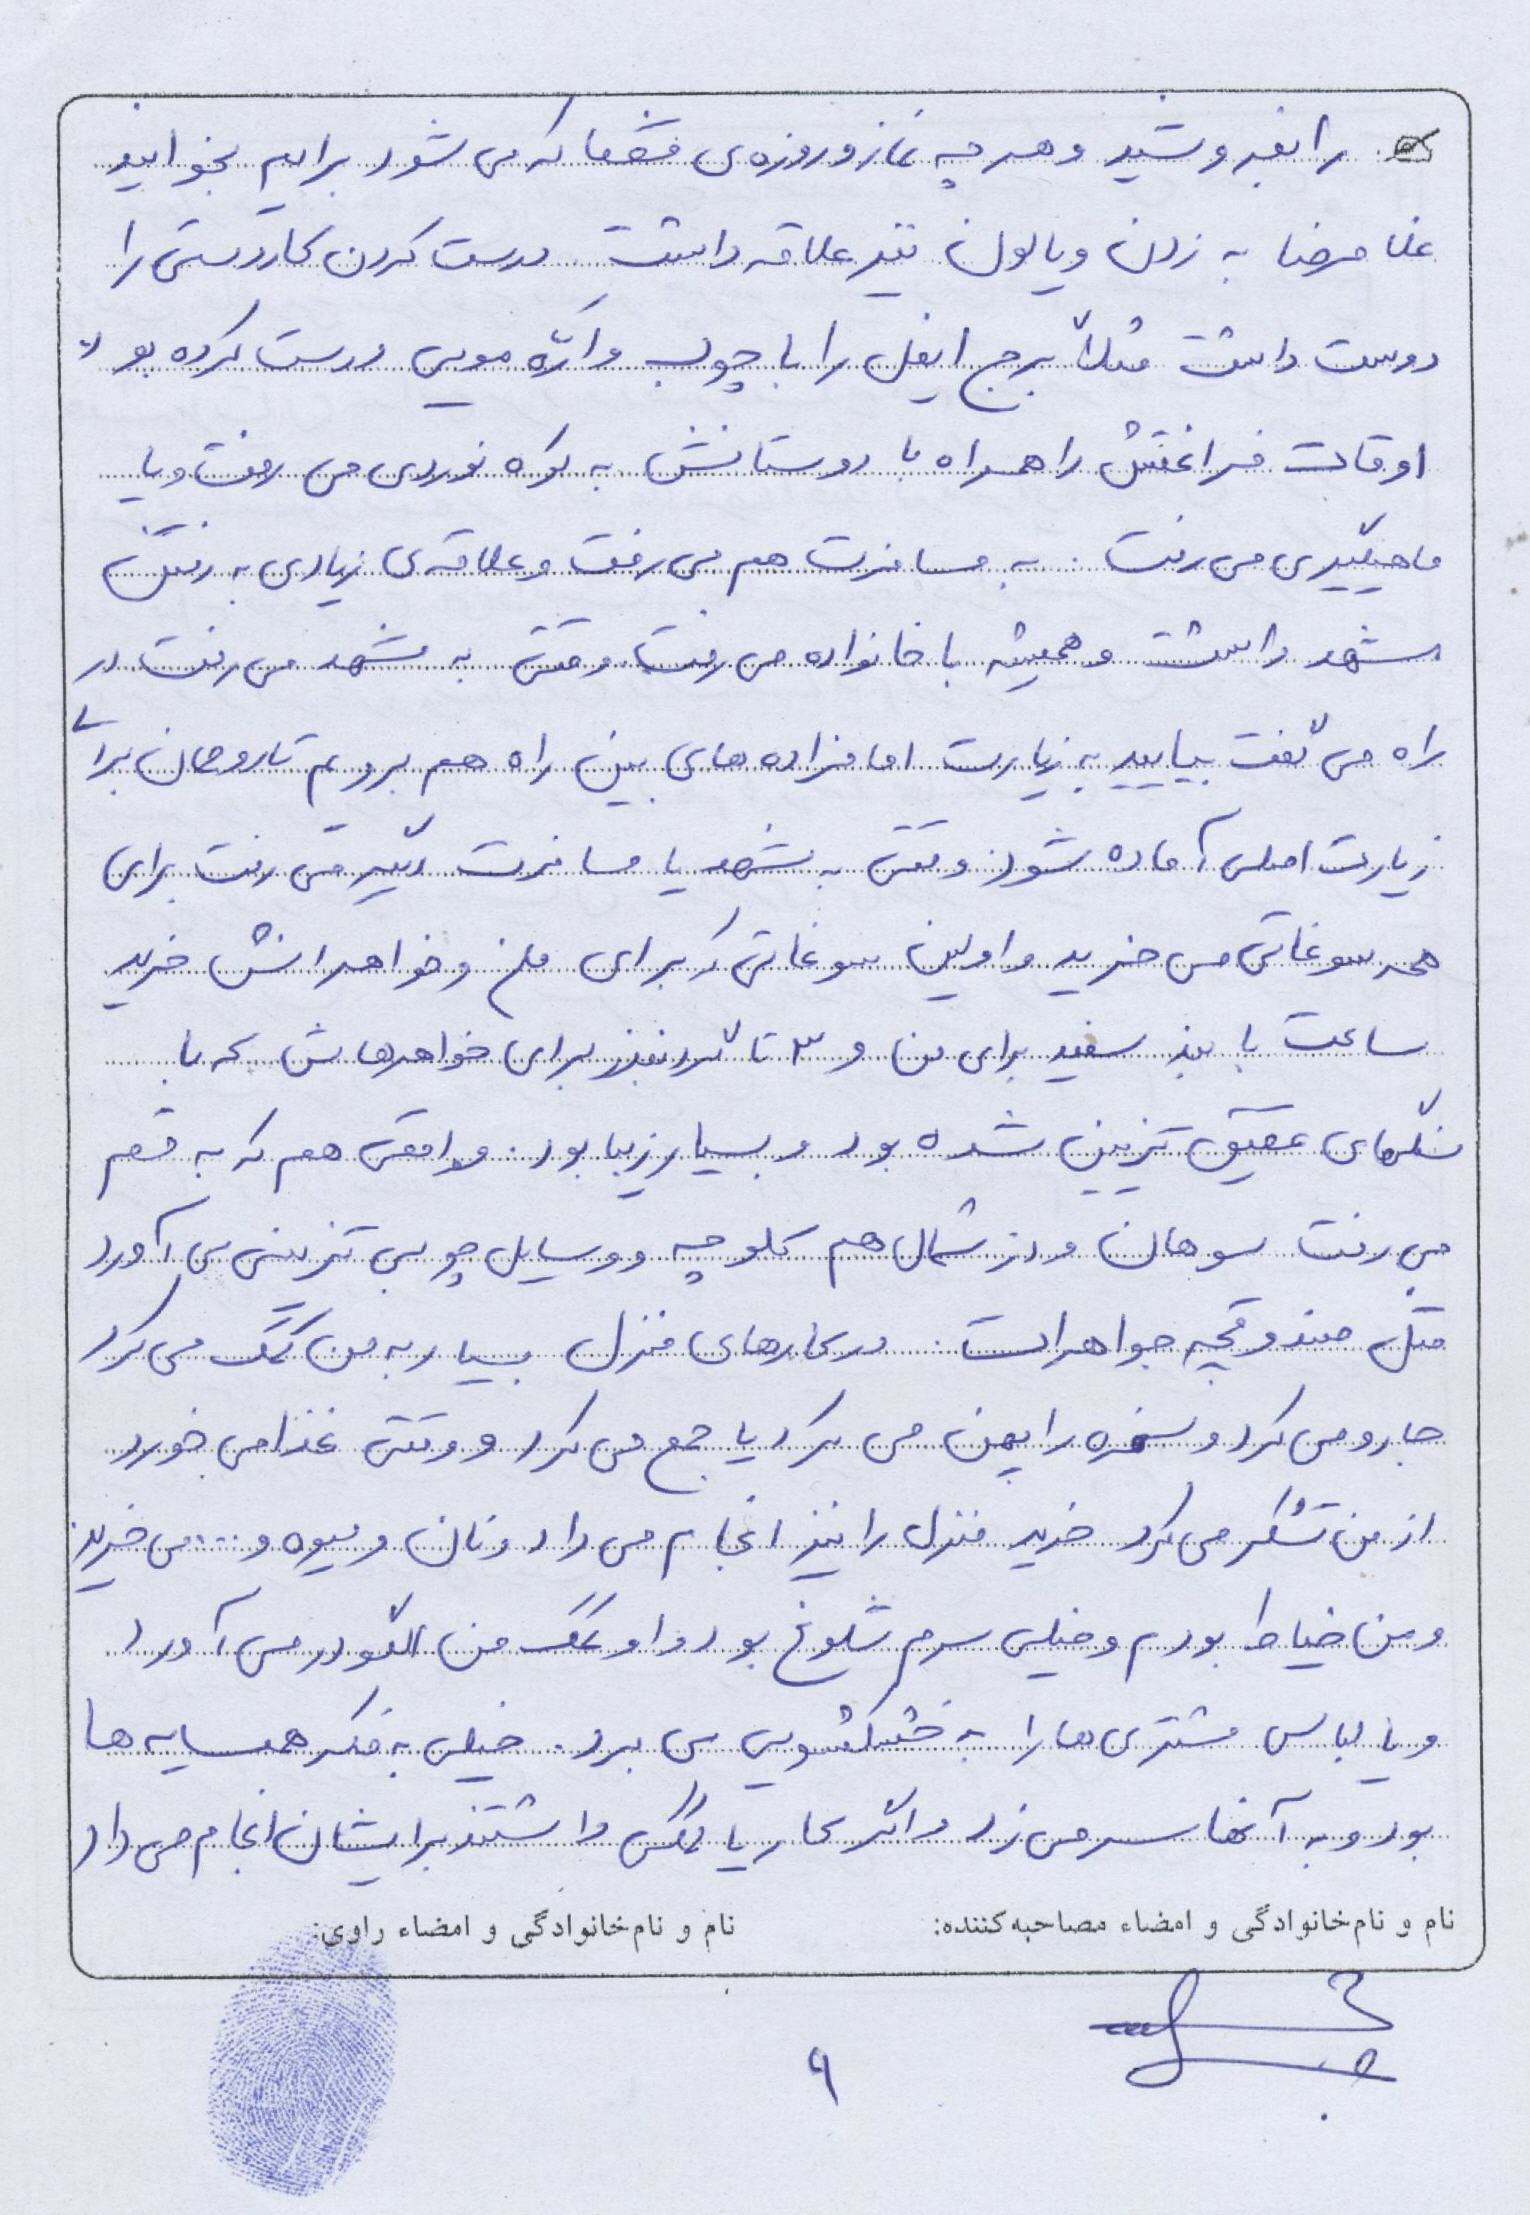 را بفروشید و هر چه نماز و روزه‌ی قضا که می شود برایم بخوانید
غلامرضا به زدن ویالون نیز علاقه داشت درست کردن کاردستی را
دوست داشت مثلاً برج ایفل را با چوب و اره مویی درست کرده بود
اوقات فراغتش را همراه با دوستانش به کوه نوردی می رفت و یا
ماهیگیری می رفت . به مسافرت هم می رفت و علاقه‌ی زیادی به رفتن
مشهد داشت و همیشه با خانواده می رفت وقتی به مشهد می رفت در
راه می گفت بیایید به زیارت امامزاده های بین راه هم برویم تا روحمان برای
زیارت اصلی آماده شود وقتی به مشهد یا مسافرت دیگر می رفت برای
همه سوغاتی می خرید و اولین سوغاتی که برای من و خواهرانش خرید
ساعت با بند سفید برای من و ۳ تا گردنبند برای خواهرهاش که با
سنگهای عقیق تزیین شده بود و بسیار زیبا بود . مواقعی هم که به قم
می رفت سوهان و از شمال هم کلوچه و وسایل چوبی تزیینی می آورد
مثل صندوقچه جواهرات . در کارهای منزل بسیار به من کمک می کرد
جارو می کرد و سفره را پهن می کرد یا جمع می کرد و وقتی غذا می خورد
از من تشکر می کرد خرید منزل را نیز انجام می داد و نان و میوه و .... می خرید
و من خیاط بودم و خیلی سرم شلوغ بود و او کمک من الگو در می آورد
و یا لباس مشتری ها را به خشکشویی می برد . خیلی به فکر همسایه ها
بود و به آنها سر می زد و اگر کار یا کمکی داشتند برایشان انجام می داد
نام و نام خانوادگی و امضاء مصاحبه کننده: نام و نام خانوادگی و امضاء راوی:
۹